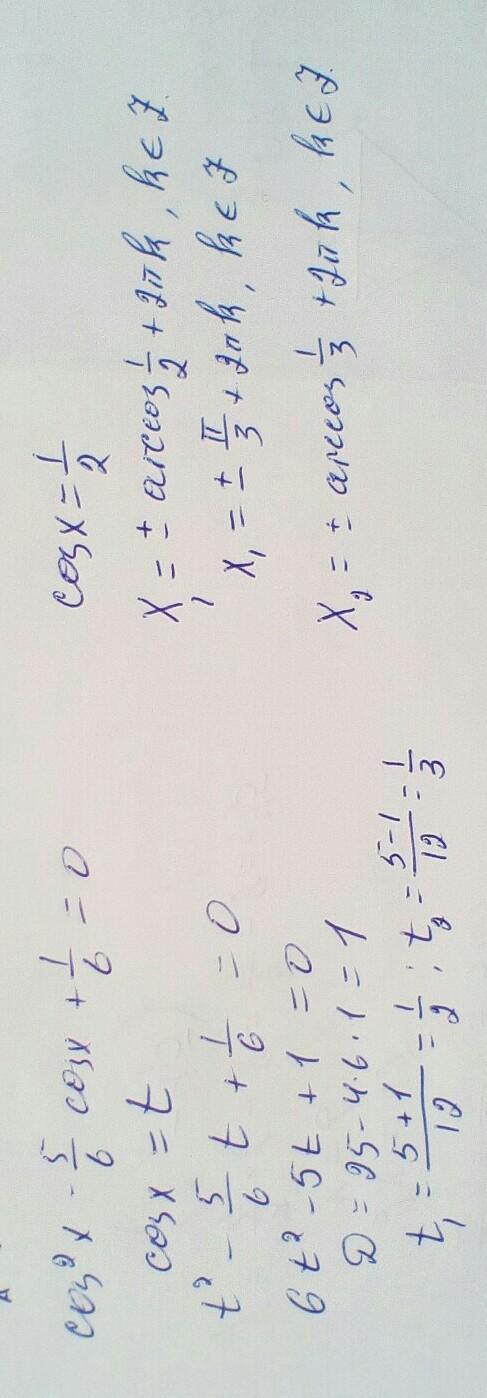 cos²x - 5/6 cosx + 1/6 = 0
cosx = t
t² - 5/6 t + 1/6 = 0
6t² - 5t + 1 = 0
D = 25 - 4·6·1 = 1
t₁ = (5+1)/12 = 1/2 ; t₂ = (5-1)/12 = 1/3
cosx = 1/2
x₁ = ± arccos 1/2 + 2πk, k ∈ Z.
x₁ = ± π/3 + 2πk, k ∈ Z
x₂ = ± arccos 1/3 + 2πk, k ∈ Z.